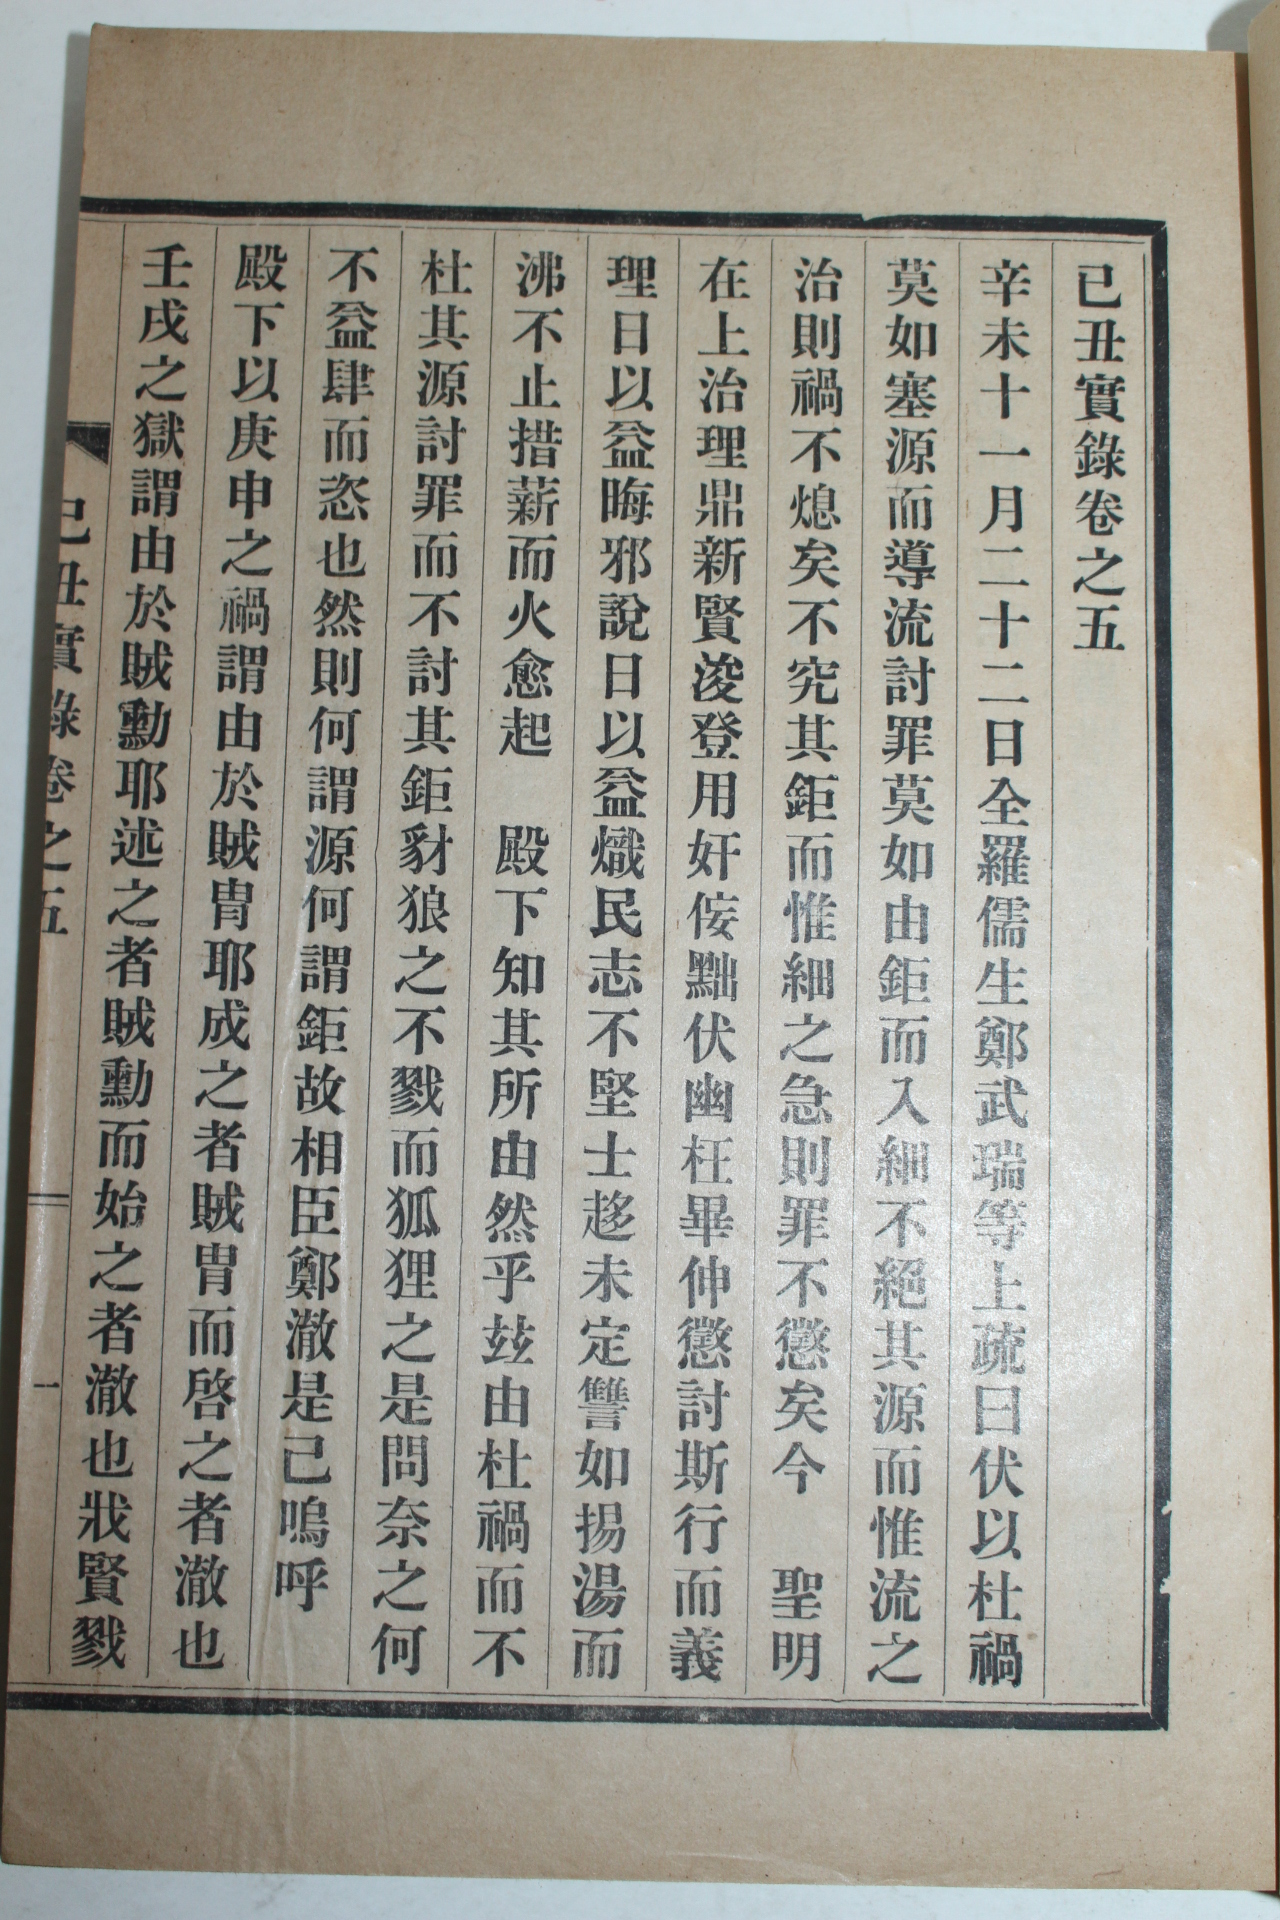 己丑實錄卷之五
辛未十一月二十二日全羅儒生鄭武瑞等上疏曰伏以杜禍
莫如塞源而導流討罪莫如由鉅而入細不絕其源而惟流之
治則禍不熄矣不究其鉅而惟細之急則罪不懲矣今　聖明
在上治理鼎新賢浚登用奸侫黜伏幽枉畢伸懲討斯行而義
理日以益晦邪說日以益熾民志不堅士趍未定讐如揚湯而
沸不止措薪而火愈起　殿下知其所由然乎玆由杜禍而不
杜其源討罪而不討其鉅豺狼之不戮而狐狸之是問奈之何
不益肆而恣也然則何謂源何謂鉅故相臣鄭澈是己嗚呼
殿下以庚申之禍謂由於賊胄耶成之者賊胄而啓之者澈也
壬戌之獄謂由於賊勳耶述之者賊勳而始之者澈也戕賢戮
己丑實錄卷之五
一